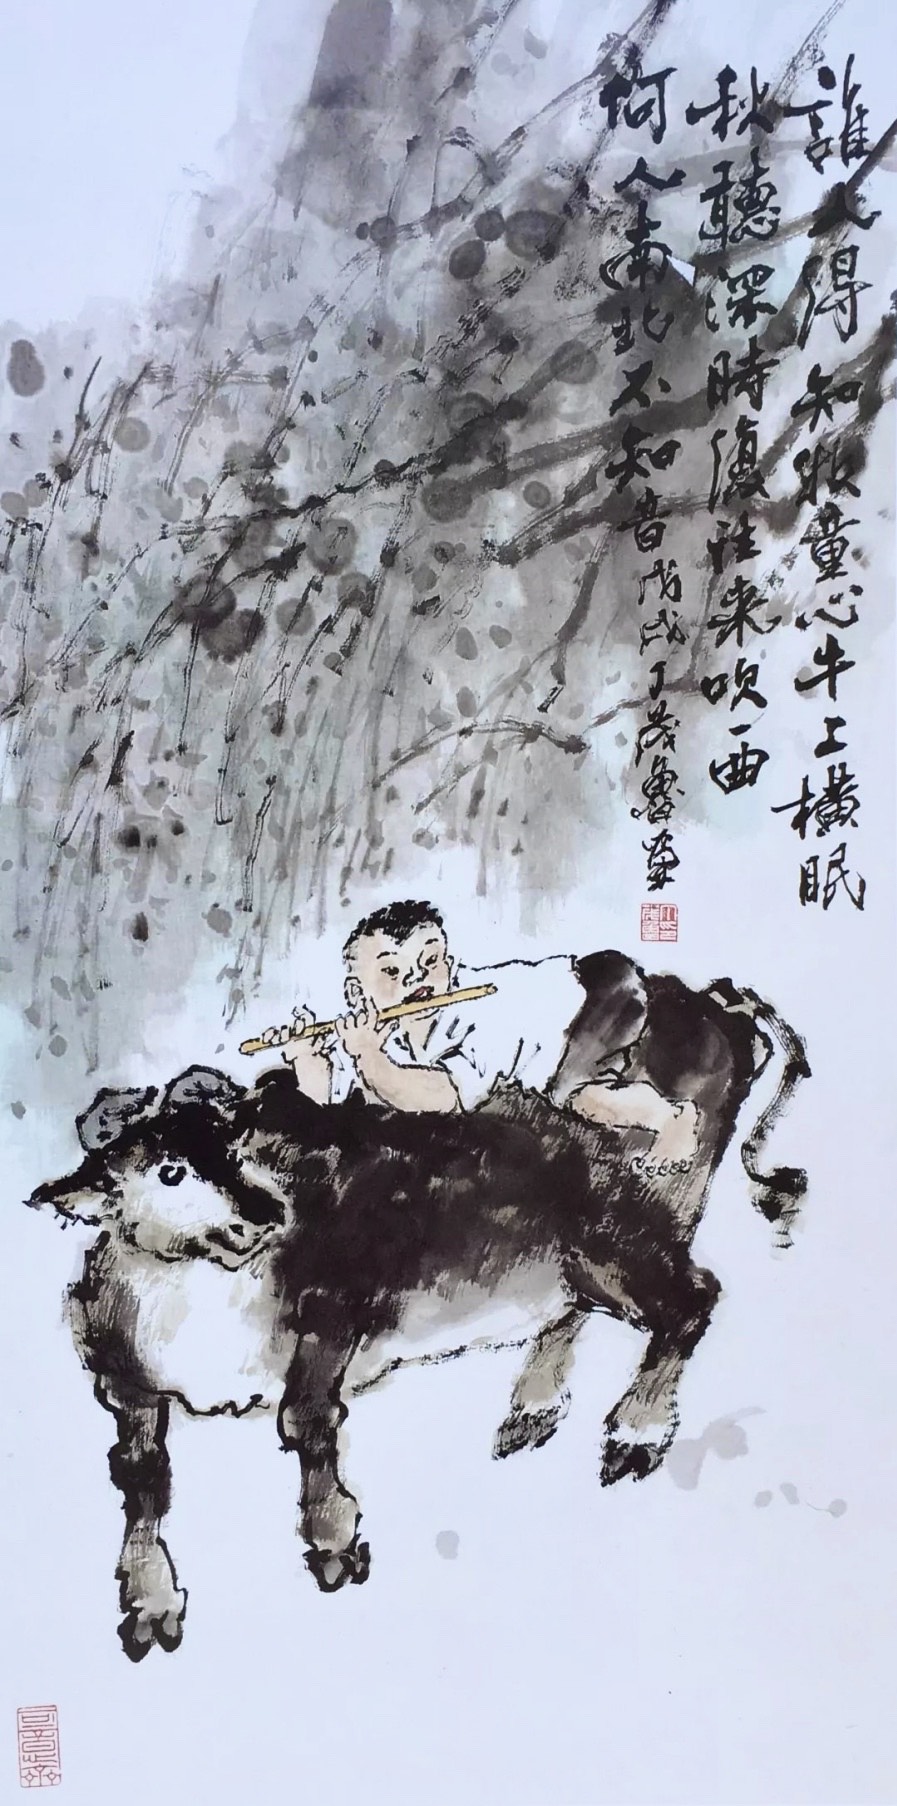 誰人得知牧童心牛上橫眠
秋聽深時復往來吹一曲
何人南北不知音戊戌丁茂魯